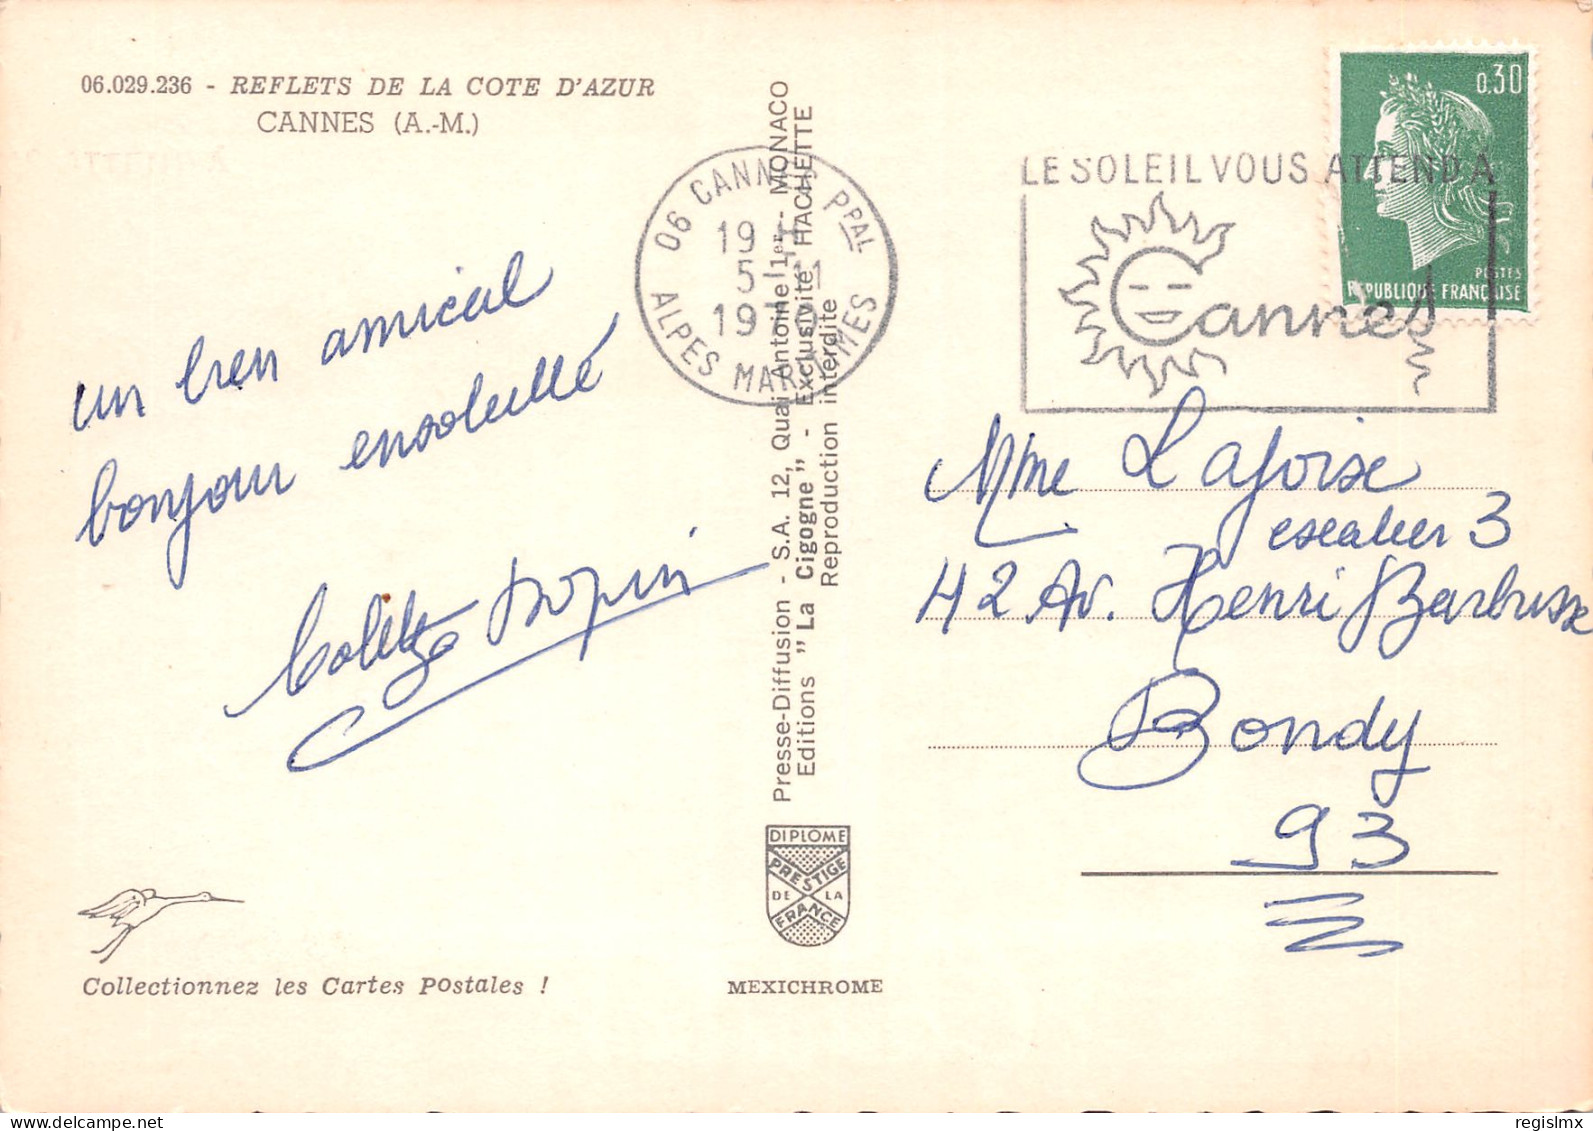 06.029.236 - REFLETS DE LA COTE D'AZUR
CANNES (A.-M.)
un bien amical
bonjour ensoleillé
Colette
Presse-Diffusion - S.A. 12, Quai Antoine 1er - MONACO
Editions "La Cigogne" - Exclusivité HACHETTE
Reproduction interdite
06 CANNES PPAL
19 H
5-11
ALPES MARITIMES
LE SOLEIL VOUS ATTEND A
Cannes
0,30
POSTES
REPUBLIQUE FRANÇAISE
Mme Lafoise
escalier 3
42 Av. Henri Barbusse
Bondy
93
DIPLOME
PRESTIGE
DE LA
FRANCE
Collectionnez les Cartes Postales !
MEXICHROME
regislmx